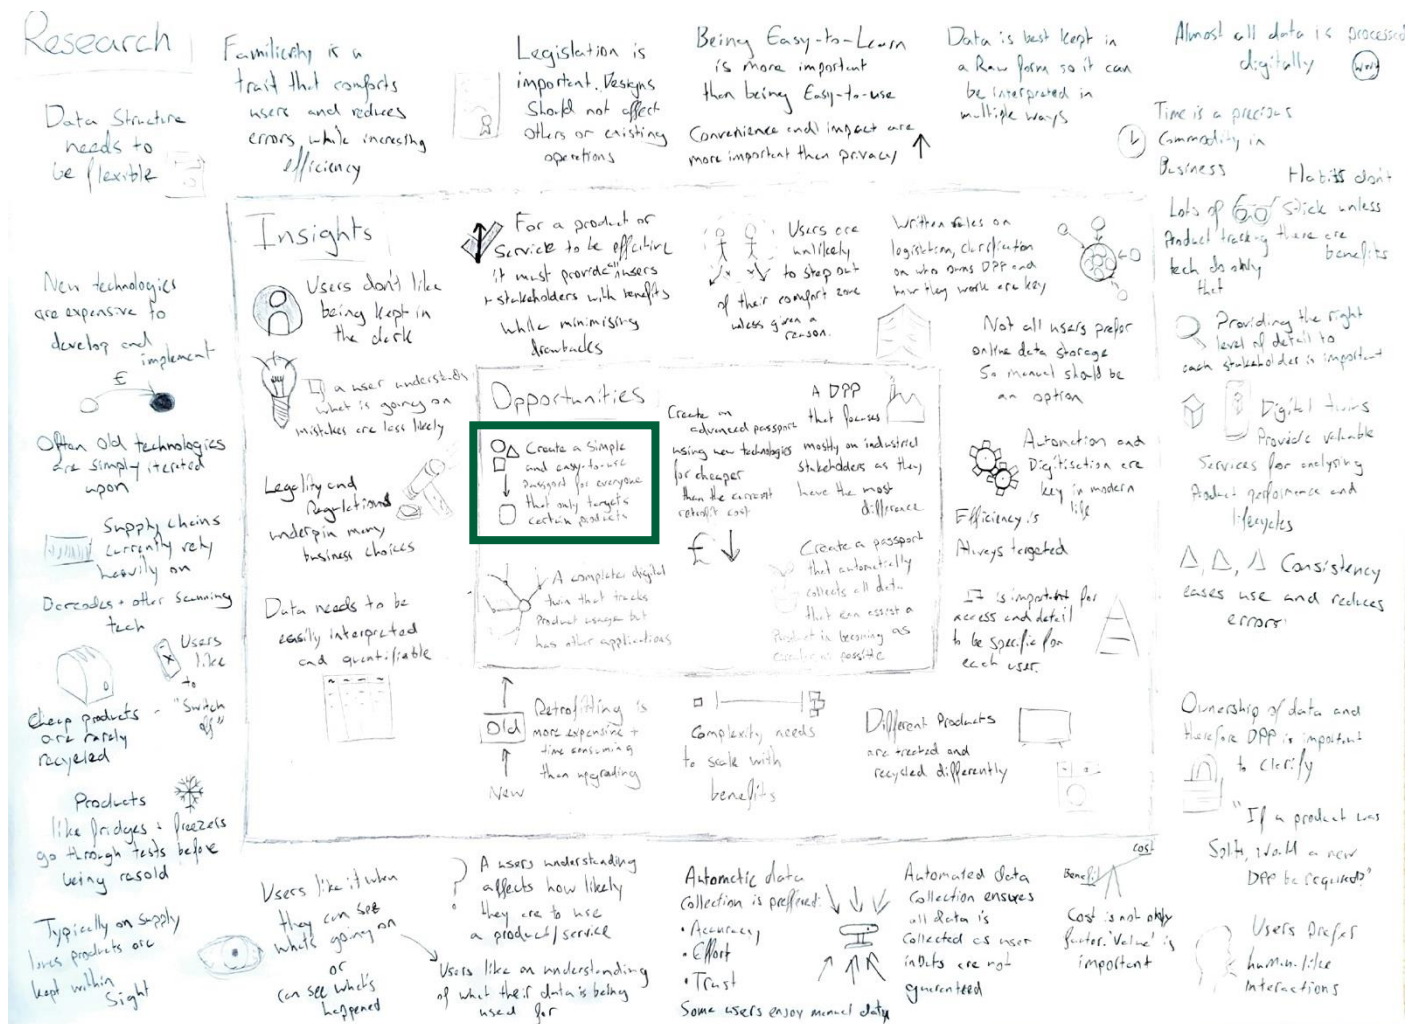 Research
Data Structure
needs to
be flexible
New technologies
are expensive to
develop and
implement
£
Often Old technologies
are simply iterated
upon
Supply chains
currently rely
heavily on
Barcodes + other scanning
tech
Users
like
to
"Switch
off"
Cheap products
are rarely
recycled
Products
like fridges + freezers
go through tests before
being resold
Typically on supply
lines products are
kept within
Sight
Familierity is a
trait that comforts
users and reduces
errors while increasing
efficiency
Legislation is
important. Designs
Should not affect
Others or existing
operations
Being Easy-to-Learn
is more important
than being Easy-to-use
Convenience and impact are
more important than privacy
Data is best kept in
a Raw form so it can
be interpreted in
multiple ways
Almost all data is processed
digitally
Time is a precious
Commodity in
Business
Habits don't
Stick unless
there are
benefits
Lots of
Product tracking
tech do only
that
Providing the right
level of detail to
each stakeholder is important
Digital twins
Provide valuable
Services for analysing
Product performance and
lifecycles
Consistency
eases use and reduces
errors
Ownership of data and
therefore DPP is important
to clarify
"If a product was
Split, would a new
DPP be required?"
Users prefer
human-like
Interactions
Insights
Users don't like
being kept in
the dark
If a user understands
what is going on
mistakes are less likely
Legality and
Regulations
underpin many
business choices
Data needs to be
easily interpreted
and quantifiable
For a product or
Service to be effective
it must provide all users
+ stakeholders with benefits
while minimising
drawbacks
Users are
unlikely
to step out
of their comfort zone
unless given a
reason.
Written rules on
legislation, clarification
on who owns DPP and
how they work are key
Not all users prefer
online data storage
So manual should be
an option
Automation and
Digitisation are
key in modern
life
Efficiency is
Always targeted
It is important for
access and detail
to be specific for
each user.
Old
New
Retrofitting is
more expensive +
time consuming
than upgrading
Complexity needs
to scale with
benefits
Different Products
are treated and
recycled differently
Opportunities
Create a simple
and easy-to-use
passport for everyone
that only targets
certain products
Create an
advanced passport
using new technologies
for cheaper
than the current
retrofit cost
£
A DPP
that focuses
mostly on industrial
stakeholders as they
have the most
difference
A complete digital
twin that tracks
Product usage but
has other applications
Create a passport
that automatically
collects all data
that can assist a
Product in becoming as
possible
Users like it when
they can see
what's going on
or
can see what's
happened
?
A users understanding
affects how likely
they are to use
a product/service
Users like an understanding
of what their data is being
used for
Automatic data
Collection is preffered:
• Accuracy
• Effort
• Trust
Some users enjoy manual data
Automated data
Collection ensures
all data is
Collected as user
inputs are not
guaranteed
Benefit
cost
Cost is not only
factor. 'Value' is
important